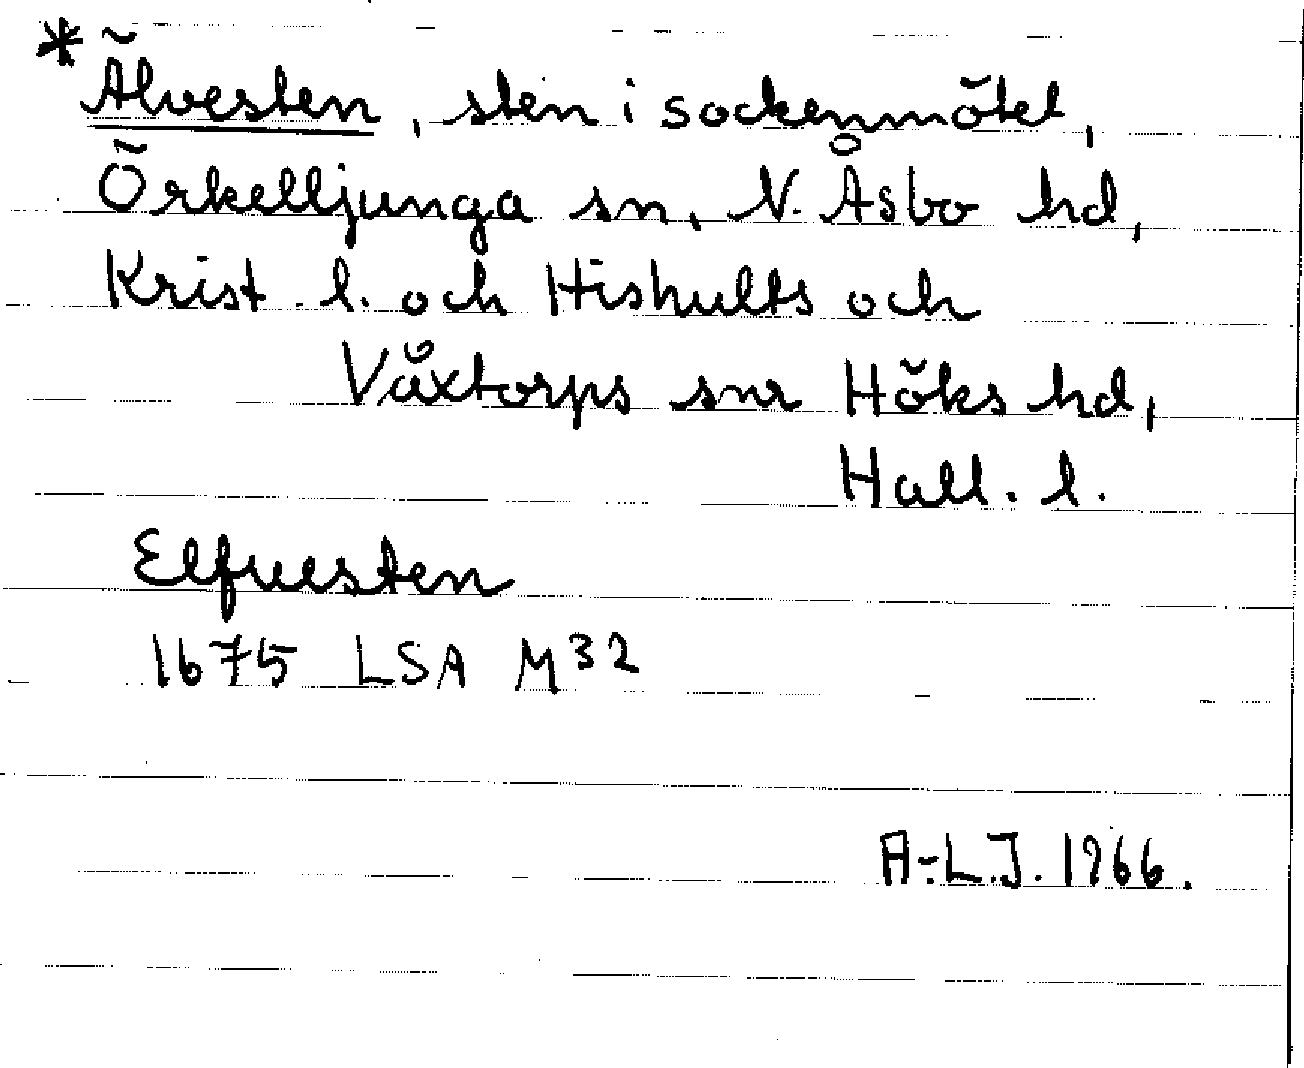 * Älvesten, sten i sockenmötet,
Örkelljunga sn, N. Åsbo hd,
Krist. l. och Hishults och
Våxtorps snr Höks hd,
Hall. l.
Elfuesten
1675 LSA M32
A-L.J. 1966.